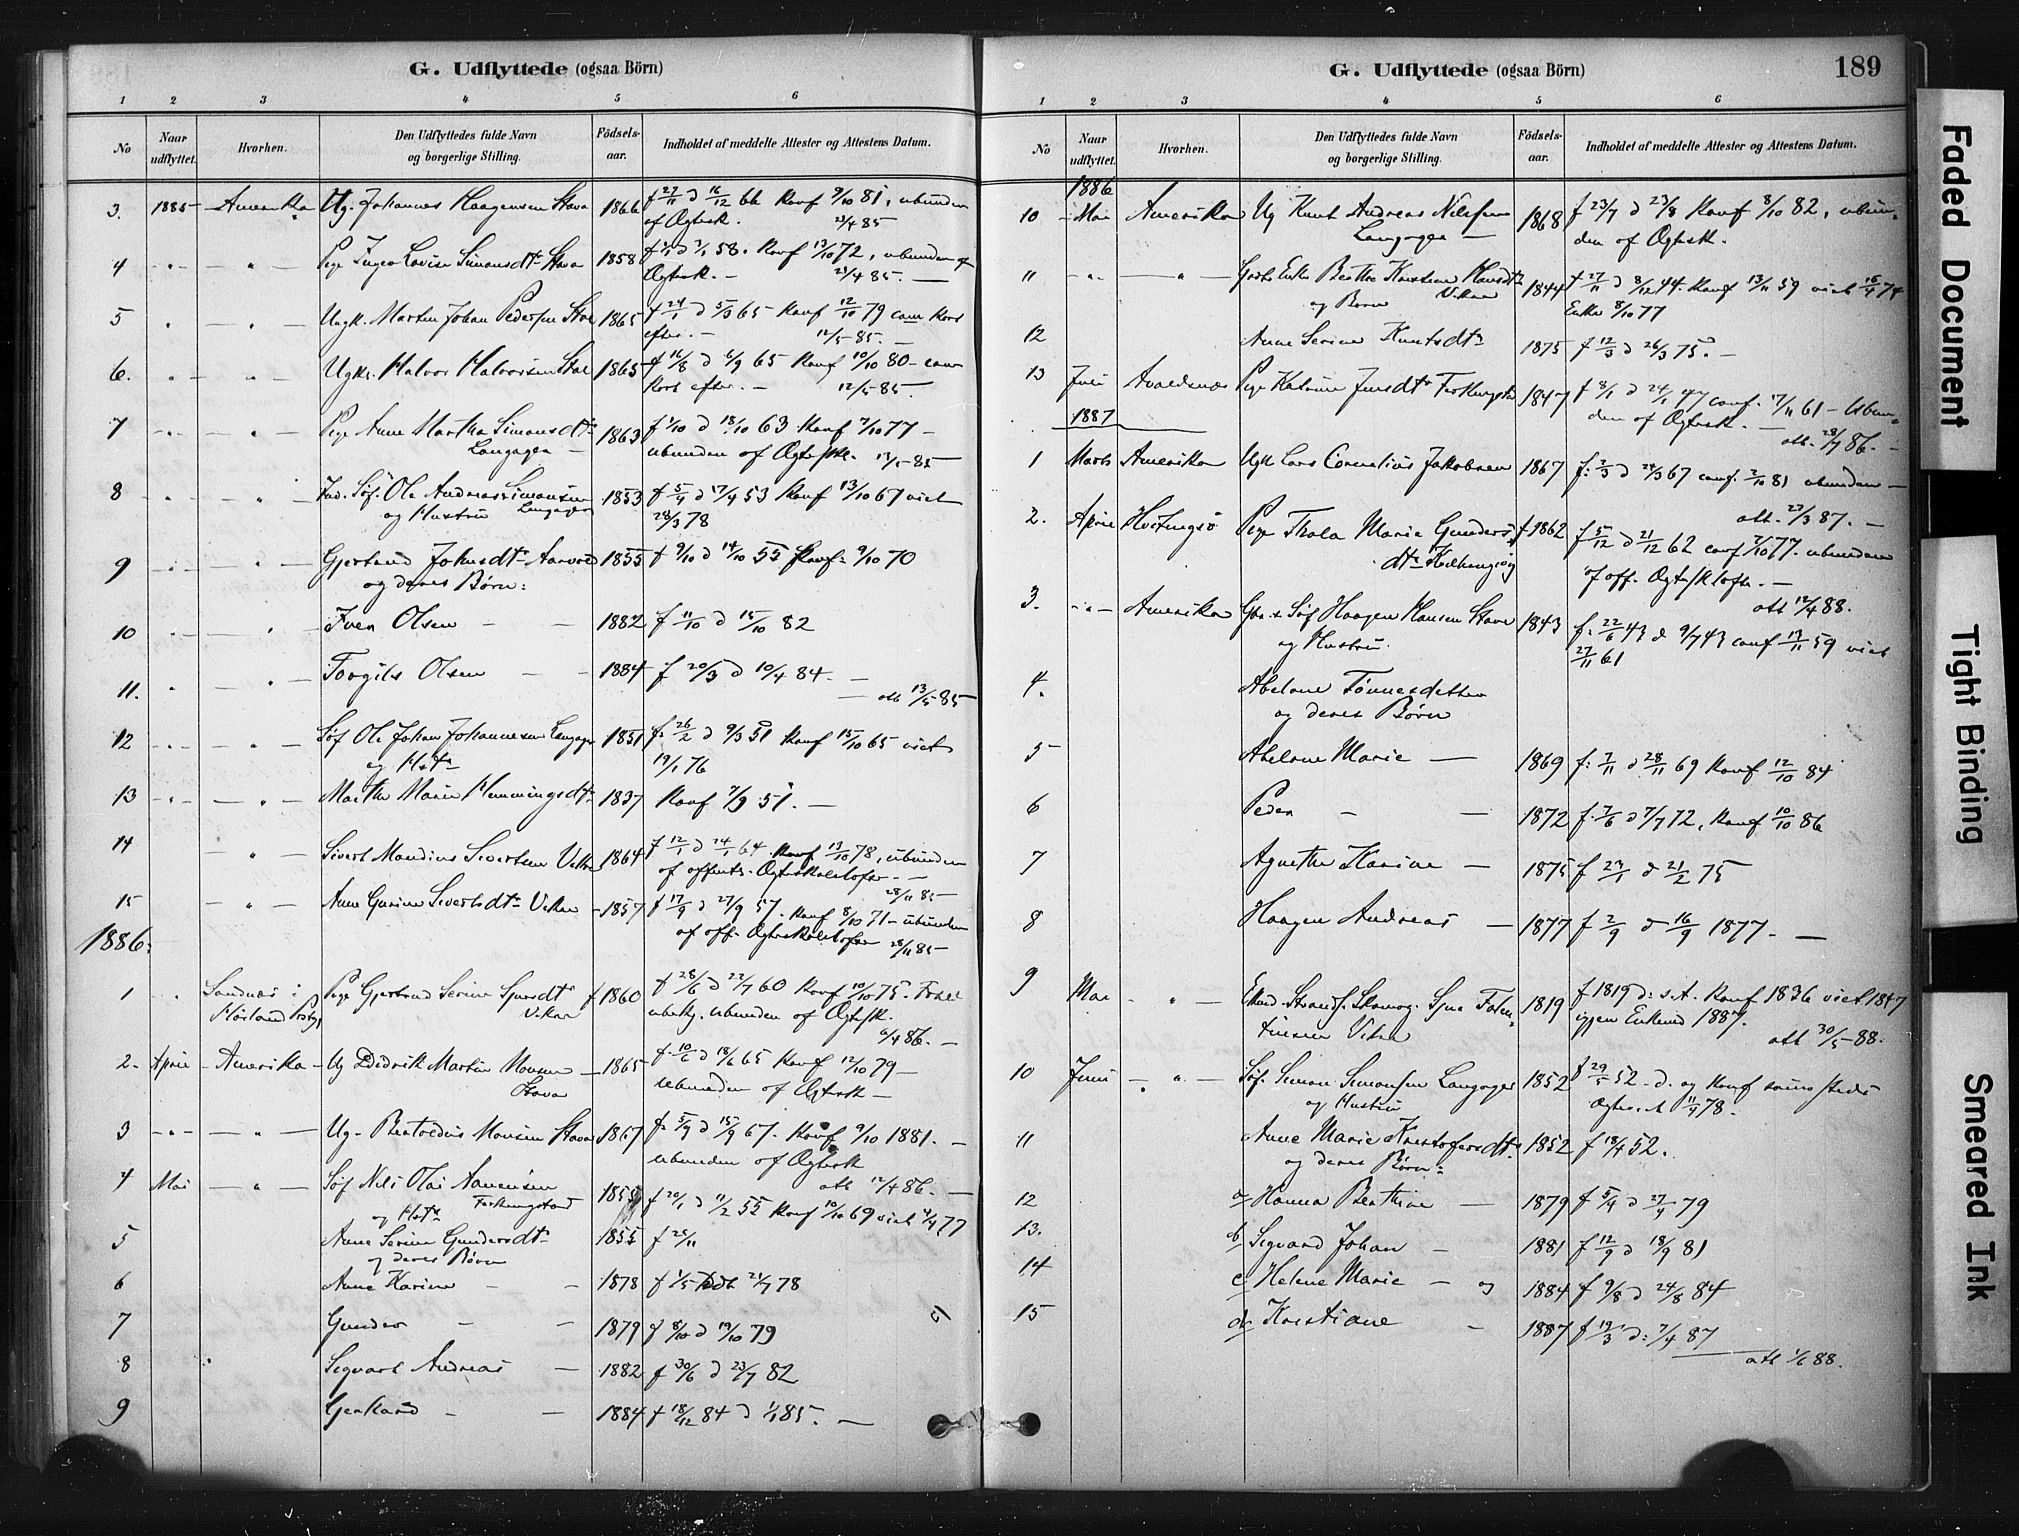 G. Udflyttede (ogsaa Börn)
1 2 3 4 5 6
No Naar udflyttet. Hvorhen. Den Udflyttedes fulde Navn og borgerlige Stilling. Födsels-aar. Indholdet af meddelte Attester og Attestens Datum.
3. 1885 Amerika Ug. Johannes Haagensen Stava 1866 f 27/11 d 16/12 66 Konf 9/10 81, ubunden
af Ægtesk. 23/4 85
4 -"- " Pige Inger Lovise Simonsdtr Stava 1858 58. Konf 13/10 72, ubunden af
Ægtesk. - 23/4 85. -
5 " - " - Ungk. Martin Johan Pedersen Stol 1865 f 24/1 d 5/3 65 Konf 12/10 79 com kort
efter. - 12/5 85. -
6. -"- -"- Ugkr. Halvor Halvorsen Stol 1865 f 16/8 d 6/9 65 Konf 10/10 80 - com
kort efter. - 12/5 85.
7 -"- -"- Pige Anne Martha Simonsdtr 1863 d 18/10 63 Konf 7/10 77 -
Langager - ubunden af Ægtesk. 13/5 85 -
8 -"- -"- Ind. Søf. Ole Andreas Simonsen 1853 f 5/4 d 17/4 53 Konf 13/10 67 viet
og Hustru Langager 28/3 78
9 -"- -"- Gjertrud Johnsdtr Aarvold 1855 f 9/10 d 14/10 55 Konf: 9/10 70
og deres Børn:
10 -"- " Iver Olsen - - 1882 f 11/10 d 15/10 82
11. " - " - Torgils Olsen - - 1884 f 20/3 d 10/4 84. -
- att 13/5 85
12 -"- -"- Søf Ole Johan Johannesen Langager 1851 f. 26/2 d 9/3 51 Konf 15/10 65 viet
og Hstr 19/1 76
13 -"- -"- Marthe Marie Hemmingsdtr 1837 Konf 7/9 51. -
14 -"- Sivert Mandius Sivertsen Vikre 1864 f 12/1 d 24/1 64 Konf 13/10 78, ubunden
af offentl. Ægteskabslofte. -
28/11 85 -
15 -"- Ane Gurine Sivertsdtr Vikre - 1857 f 17/9 d 27/9 57. Konf 8/10 71 - ubunden
af off. Ægteskabslofte 28/11 85 -
1886:
1 " Sandnes i Pige Gjertrud Serine 1860 f 28/6 d 22/7 60 Konf 10/10 75.
Vikre ubunden af Ægtesk.
6/4 86. -
2 - April - Amerika - Ug Didrik Martin Monsen - 1865 f. 10/6 d 18/6 65 Konf 12/10 79 -
Stava ubunden af Ægtesk -
3 -"- -"- Ug. Bertoldus Monsen Stava 1867 f. 5/9 d 15/9 67. Konf 9/10 1881. -
ubunden af Ægtesk
att 12/4 86. -
4 Mai -"- Søf Nils Olai Aanensen 1855 f 20/1 d 11/2 55 Konf 10/10 69 viet 4/4 77
og Hstr Ferkingstad
5 Anne Serine Gundersdtr 1855 f 25/11
og deres Børn
6 Anne Karine - - 1878 f 1/5 døbt 21/7 78
7 Gunder - - 1879 f 8/10 d 19/10 79
8 Sigvart Andreas - 1882 f 30/6 d 23/7 82
9 Gerhard - - 1884 f 18/12 84 d 1/1 85. -
G. Udflyttede (ogsaa Börn) 189
1 2 3 4 5 6
No Naar udflyttet. Hvorhen. Den Udflyttedes fulde Navn og borgerlige Stilling. Födsels-aar. Indholdet af meddelte Attester og Attestens Datum.
1886
10 - Mai Amerika Ug Knut Andreas Nilssen 1868 f 23/7 d 23/8 Konf 8/10 82, ubun-
Langager - den af Ægtesk.
11 -"- -"- Enke Berthe Karstine Hansdtr 1844 f 27/11 d 8/12 44. Konf 13/11 59 viet 16/4 74
og Børn Vikre Enke 8/10 77
12 Anne Serine Knutsdtr 1875 f 12/3 d 26/3 75. -
13 Juli Avaldsnes Pige Katrine Jensdtr Ferkingstad 1847 f 8/1 d 24/1 47 conf. 17/11 61 - Ubun-
den af Ægtesk. -
att. 28/7 86. -
1887
1 Marts Amerika Ugk Lars Cornelius Jakobsen 1867 f: 2/3 d 24/3 67 conf. 2/10 81 ubunden -
att. 27/3 87. -
2. April Hvitingsø Pige Thala Marie Gunders 1862 f 5/12 d 21/12 62 conf 7/10 77. ubunden
dtr af off. Ægteskløfte. -
att 12/4 88.
3. -"- Amerika Søf Haagen Hansen Stava 1843 f: 22/6 43 d 9/7 43 conf 13/11 59 viet
og Hustru. 27/11 61
4. Abelone Tønnesdatter
og deres Børn
5 Abelone Marie - 1869 f: 7/11 d 28/11 69 Konf 12/10 84
6 Peder - - 1872 f. 7/6 d 7/7 72, Konf 10/10 86
7 Agnethe Karine - 1875 f 23/1 d 21/2 75
8 Haagen Andreas - 1877 f 2/9 d 16/9 1877. -
9 Mai -"- 1819 f 1819 d: s.A. Konf 1836 viet 1847
Vikre igjen Enkemd 1887.
att 30/5 88.
10 Juni -"- Søf. Simon Simonsen Langager 1852 f 29/5 52 - d. og Konf samme steds
og Hustru 11/4 78.
11 Anne Marie Kristofersdtr 1852 f 18/4 52.
og deres Børn:
12 a/ Hanna Berthine - 1879 f 5/4 d 27/4 79
13. b/ Sigvard Johan - 1881 f 12/9 d 18/9 81
14 c/ Helene Marie - og 1884 f 9/8 d 24/8 84
15 d/ Kristiane - 1887 f 19/3 d: 7/4 87
att 1/6 88.
Faded Document
Tight Binding
Smeared Ink